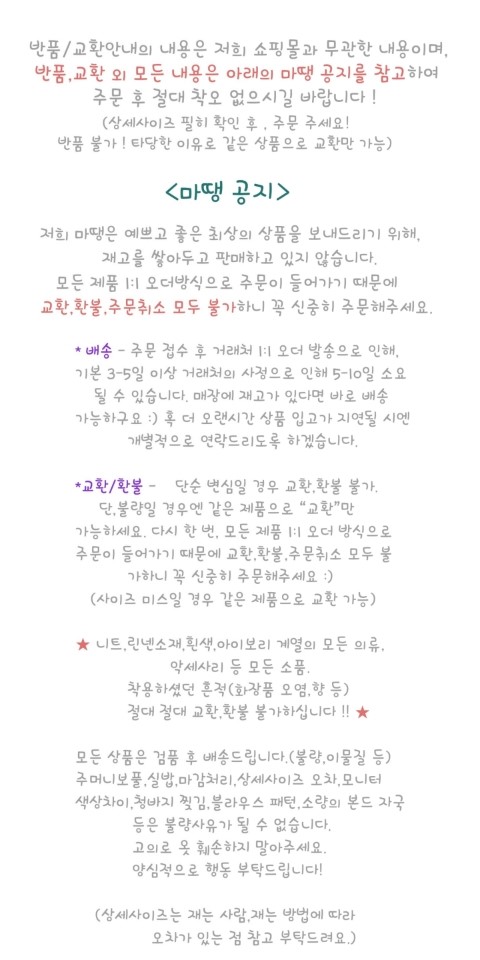 반품/교환안내의 내용은 저희 쇼핑몰과 무관한 내용이며,
반품,교환 외 모든 내용은 아래의 마땡 공지를 참고하여
주문 후 절대 착오 없으시길 바랍니다 !
(상세사이즈 필히 확인 후 , 주문 주세요!
반품 불가 ! 타당한 이유로 같은 상품으로 교환만 가능)
<마땡 공지>
저희 마땡은 예쁘고 좋은 최상의 상품을 보내드리기 위해,
재고를 쌓아두고 판매하고 있지 않습니다.
모든 제품 1:1 오더방식으로 주문이 들어가기 때문에
교환,환불,주문취소 모두 불가하니 꼭 신중히 주문해주세요.
* 배송 - 주문 접수 후 거래처 1:1 오더 발송으로 인해,
기본 3-5일 이상 거래처의 사정으로 인해 5-10일 소요
될 수 있습니다. 매장에 재고가 있다면 바로 배송
가능하구요 :) 혹 더 오랜시간 상품 입고가 지연될 시엔
개별적으로 연락드리도록 하겠습니다.
*교환/환불 - 단순 변심일 경우 교환,환불 불가.
단,불량일 경우엔 같은 제품으로 "교환"만
가능하세요. 다시 한 번, 모든 제품 1:1 오더 방식으로
주문이 들어가기 때문에 교환,환불,주문취소 모두 불
가하니 꼭 신중히 주문해주세요 :)
(사이즈 미스일 경우 같은 제품으로 교환 가능)
★ 니트,린넨소재,흰색,아이보리 계열의 모든 의류,
악세사리 등 모든 소품.
착용하셨던 흔적(화장품 오염,향 등)
절대 절대 교환,환불 불가하십니다 !! ★
모든 상품은 검품 후 배송드립니다.(불량,이물질 등)
주머니보풀,실밥,마감처리,상세사이즈 오차,모니터
색상차이,청바지 찢김,블라우스 패턴,소량의 본드 자국
등은 불량사유가 될 수 없습니다.
고의로 옷 훼손하지 말아주세요.
양심적으로 행동 부탁드립니다!
(상세사이즈는 재는 사람,재는 방법에 따라
오차가 있는 점 참고 부탁드려요.)